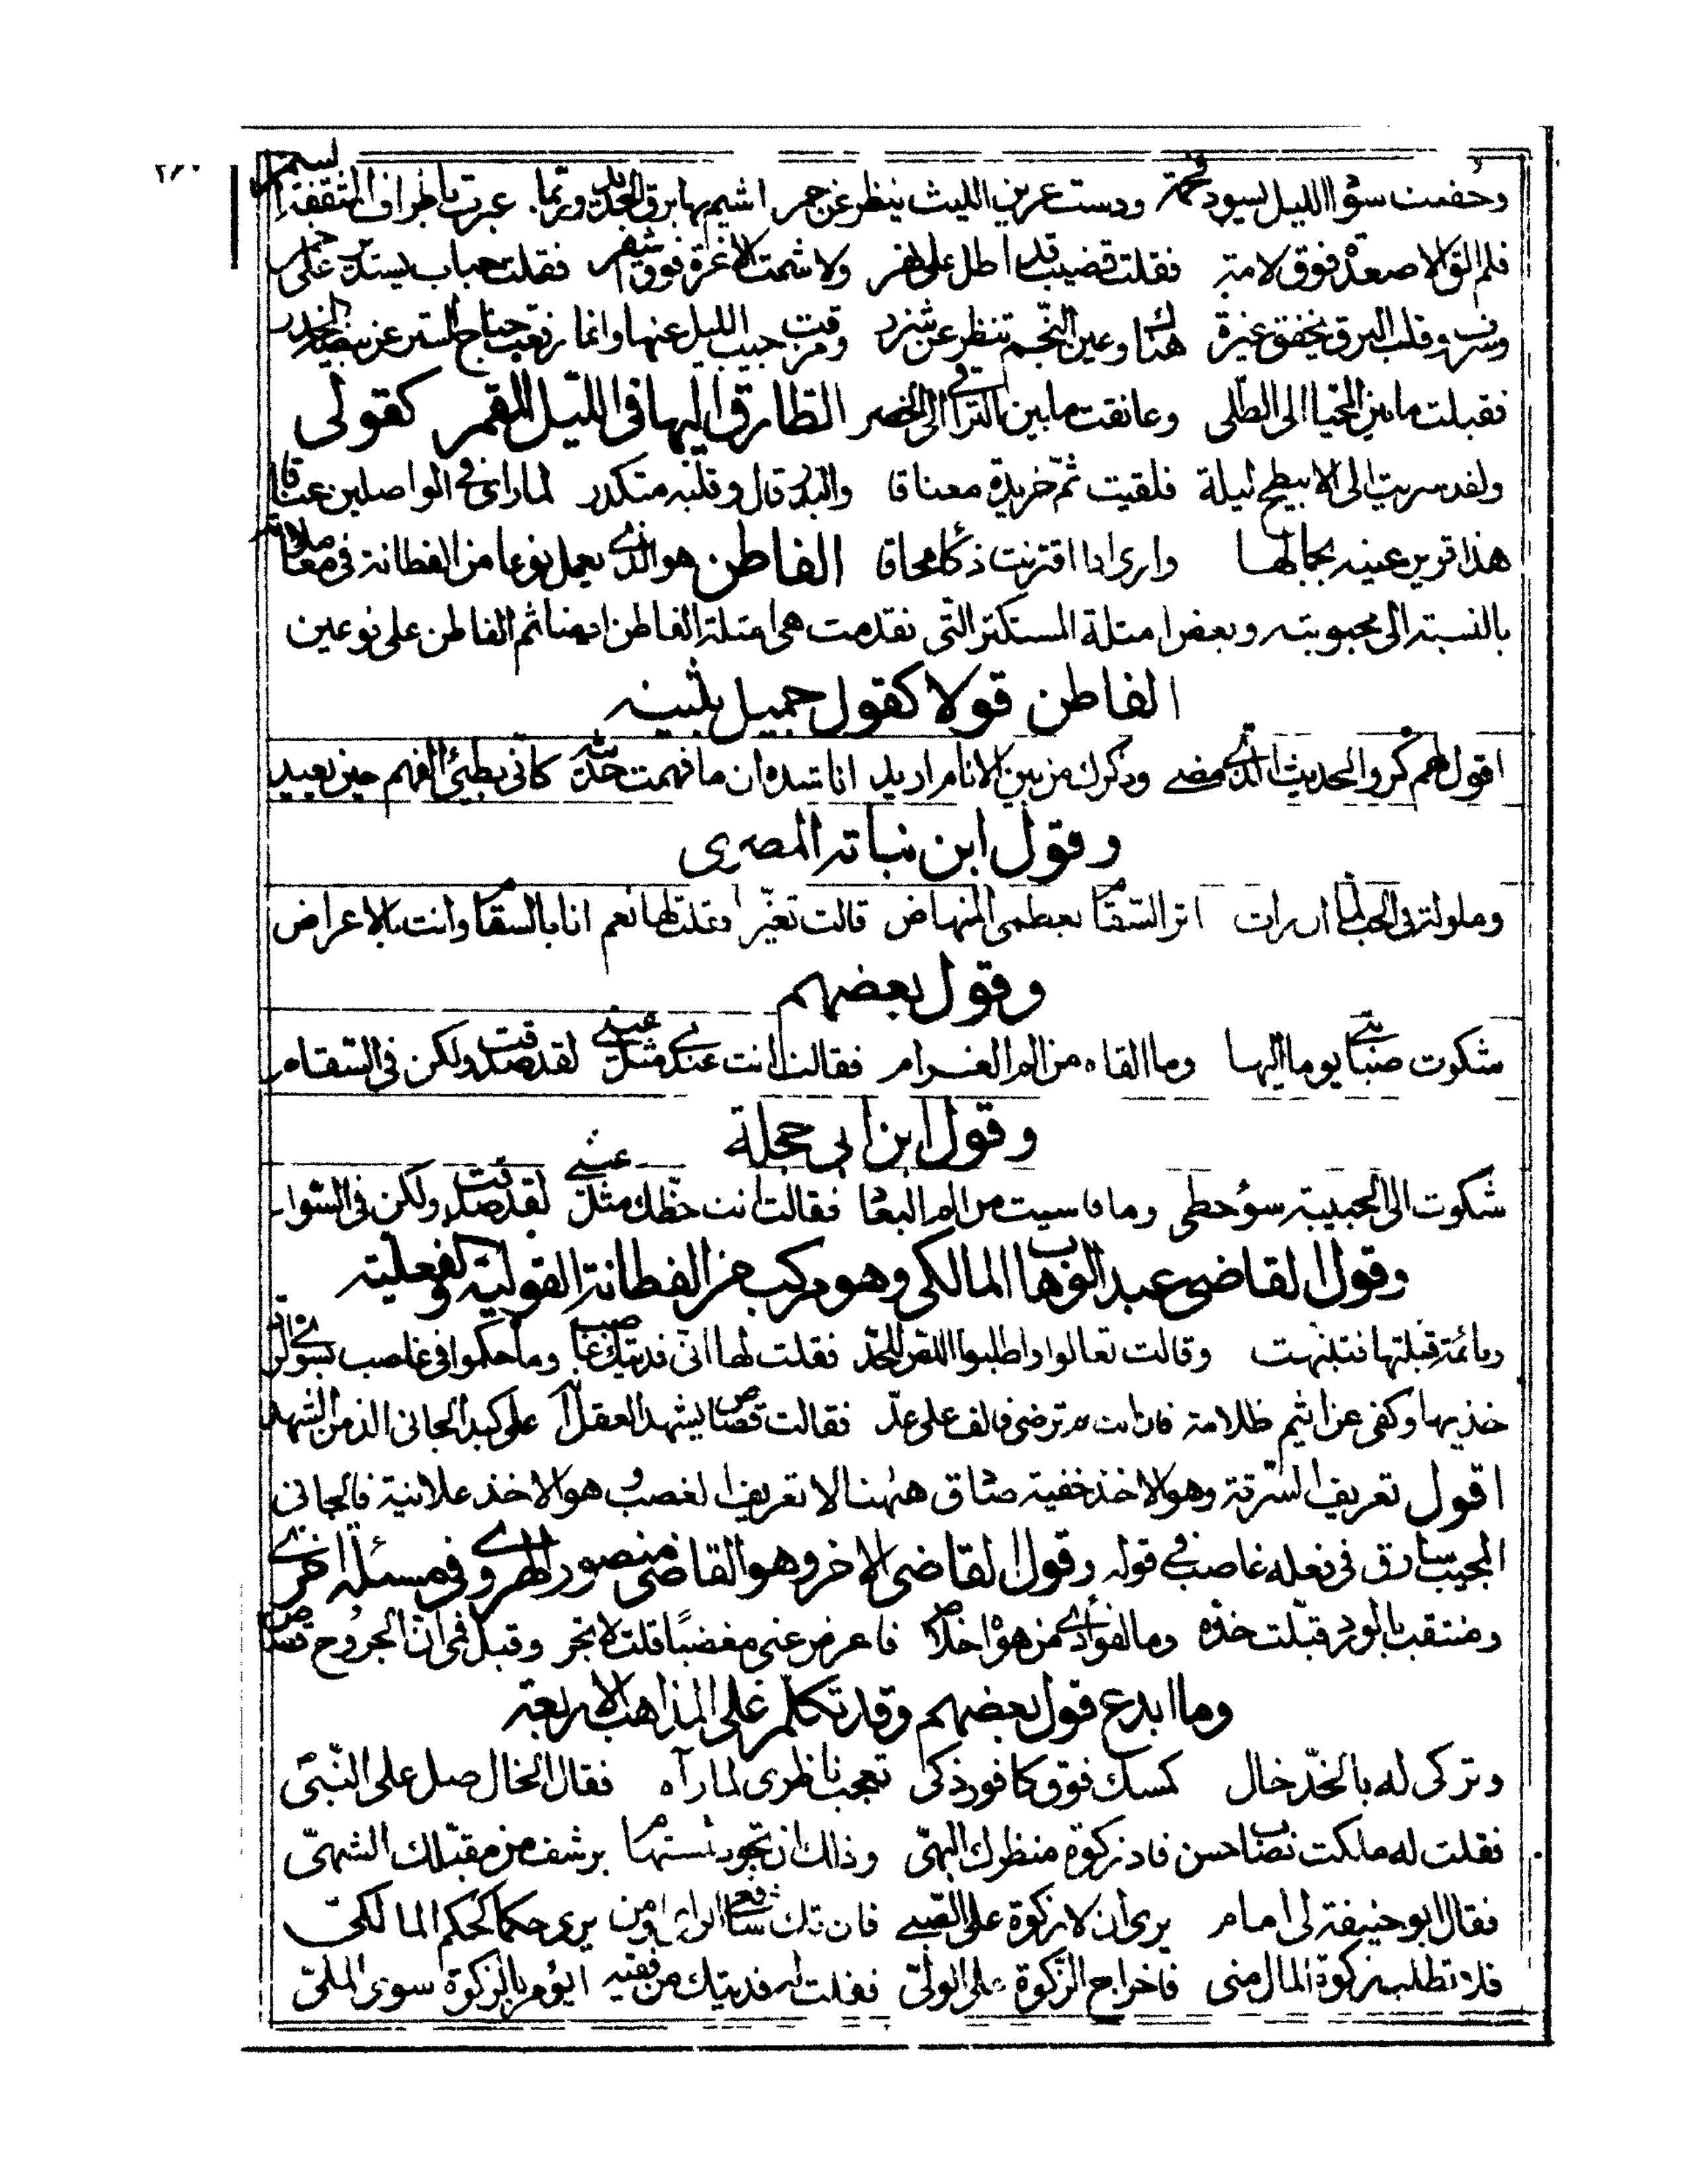 وخضت سواد الليل يسود فحمة ودست عرين الليث ينظر عن جمر اشيم بها برق الحديد وربما عبرت باطراف المثقفة السمر
فلم الق الا صعدة فوق لامة فقلت قضيب قد اطل على نهر ولا شمت الا غرة فوق اشقر فقلت حباب يستدير على خمر
وسرت وقلب البرق يخفق غيرة هناك وعين النجم تنظر عن شزر ومزقت جيب الليل عنها وانما رفعت جناح الستر عن بيضة الخدر
فقبلت ما بين المحيا الى الطلى وعانقت ما بين التراقي الى الخصر الطارق اليها في الليل المقمر كقولي
ولقد سريت الى الابيطح ليلة فلقيت ثم خريدة معناقا والبدر قال وقلبه متكدر لما راى في الواصلين عناقا
هذا قرير عينه بجمالها وارى اذا اقترنت ذكاء محاقا الفاطن هو الذي يعمل نوعا من الفطانة في معاملاته
بالنسبة الى محبوبته وبعض امثلة المستكتر التي تقدمت هي امثلة الفاطن ايضا ثم الفاطن على نوعين
الفاطن قولا كقول جميل بثينه
اقول لهم كروا الحديث الذي مضى وذكرك من بين الانام اريد اناشده ان ما فهمت حديثه كاني بطيئ الفهم حين يعيد
وقول ابن نباته المصرى
وملولة في الحب لما ان رات اثر السقام بعظمى المنهاض قالت تغيرا وقلت لها نعم انا بالسقام وانت بالاعراض
وقول بعضهم
شكوت صبابتي يوما اليها وما القاه من الم الغرام فقالت انت عندي مثل عيني لقد صدقت ولكن في السقام
وقول ابن ابي حجلة
شكوت الى الحبيبة سوء حظى وما قاسيت من الم البعاد فقالت انت حظك مثل عيني لقد صدقت ولكن في السواد
وقول القاضي عبد الوهاب المالكى وهو مركب من الفطانة القولية والفعلية
ونائمة قبلتها فتنبهت وقالت تعالوا واطلبوا اللص للحد فقلت لها انى فديتك غاصب وما حكموا في غاصب بسوى الرد
خذيها وكفى عن اثيم ظلامة فان انت لم ترضى فالف على عد فقالت قصاص يشهد العقل انه على كبد الجانى الذ من الشهد
اقول تعريف السرقة وهو الاخذ خفية صادق ههنا لا تعريف الغصب وهو الاخذ علانية فالجانى
المجيب سارق في فعله غاصب في قوله وقول القاضى الاخر وهو القاضى منصور الهروي في مسئلة اخرى
ومنتقب بالورد قبلت خده وما لفؤادي من هواه خلاص فاعرض عني مغضبا قلت لا تجر وقبل فمى ان الجروح قصاص
وما ابدع قول بعضهم وقد تكلم على المذاهب الاربعة
وتركى له بالخد خال كمسك فوق كافور ذكى تعجب ناظرى لما رآه فقال الخال صل على النبى
فقلت له ملكت نصاب حسن فاد زكوة منظرك البهى وذلك ان تجود لمستهام برشف من مقبلك الشهى
فقال ابو حنيفة لى امام يرى ان لا زكوة على الصبي فان تك شافعى الراى او من يرى حكما كحكم المالكى
فلا تطلب زكوة المال منى فاخراج الزكوة على الولى فقلت له فديتك من فقيه ايؤمر بالزكوة سوى الملى